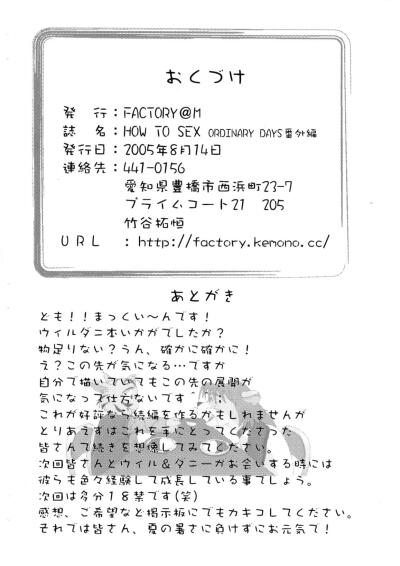 おくづけ
発　行：FACTORY@M
誌　名：HOW TO SEX ORDINARY DAYS番外編
発行日：2005年8月14日
連絡先：441-0156
愛知県豊橋市西浜町23-7
プライムコート21　205
竹谷拓恒
URL　：http://factory.kemono.cc/
あとがき
ども！！まっくい〜んです！
ウィルダニ本いかがでしたか？
物足りない？うん、確かに確かに！
え？この先が気になる…ですか
自分で描いていてもこの先の展開が
気になって仕方ないです^^;
これが好評なら続編を作るかもしれませんが
とりあえずはこれを手にとってくださった
皆さんで続きを想像してみてください。
次回皆さんとウィル＆ダニーがお会いする時には
彼らも色々経験して成長している事でしょう。
次回は多分１８禁です(笑)
感想、ご希望など掲示板にでもカキコしてください。
それでは皆さん、夏の暑さに負けずにお元気で！